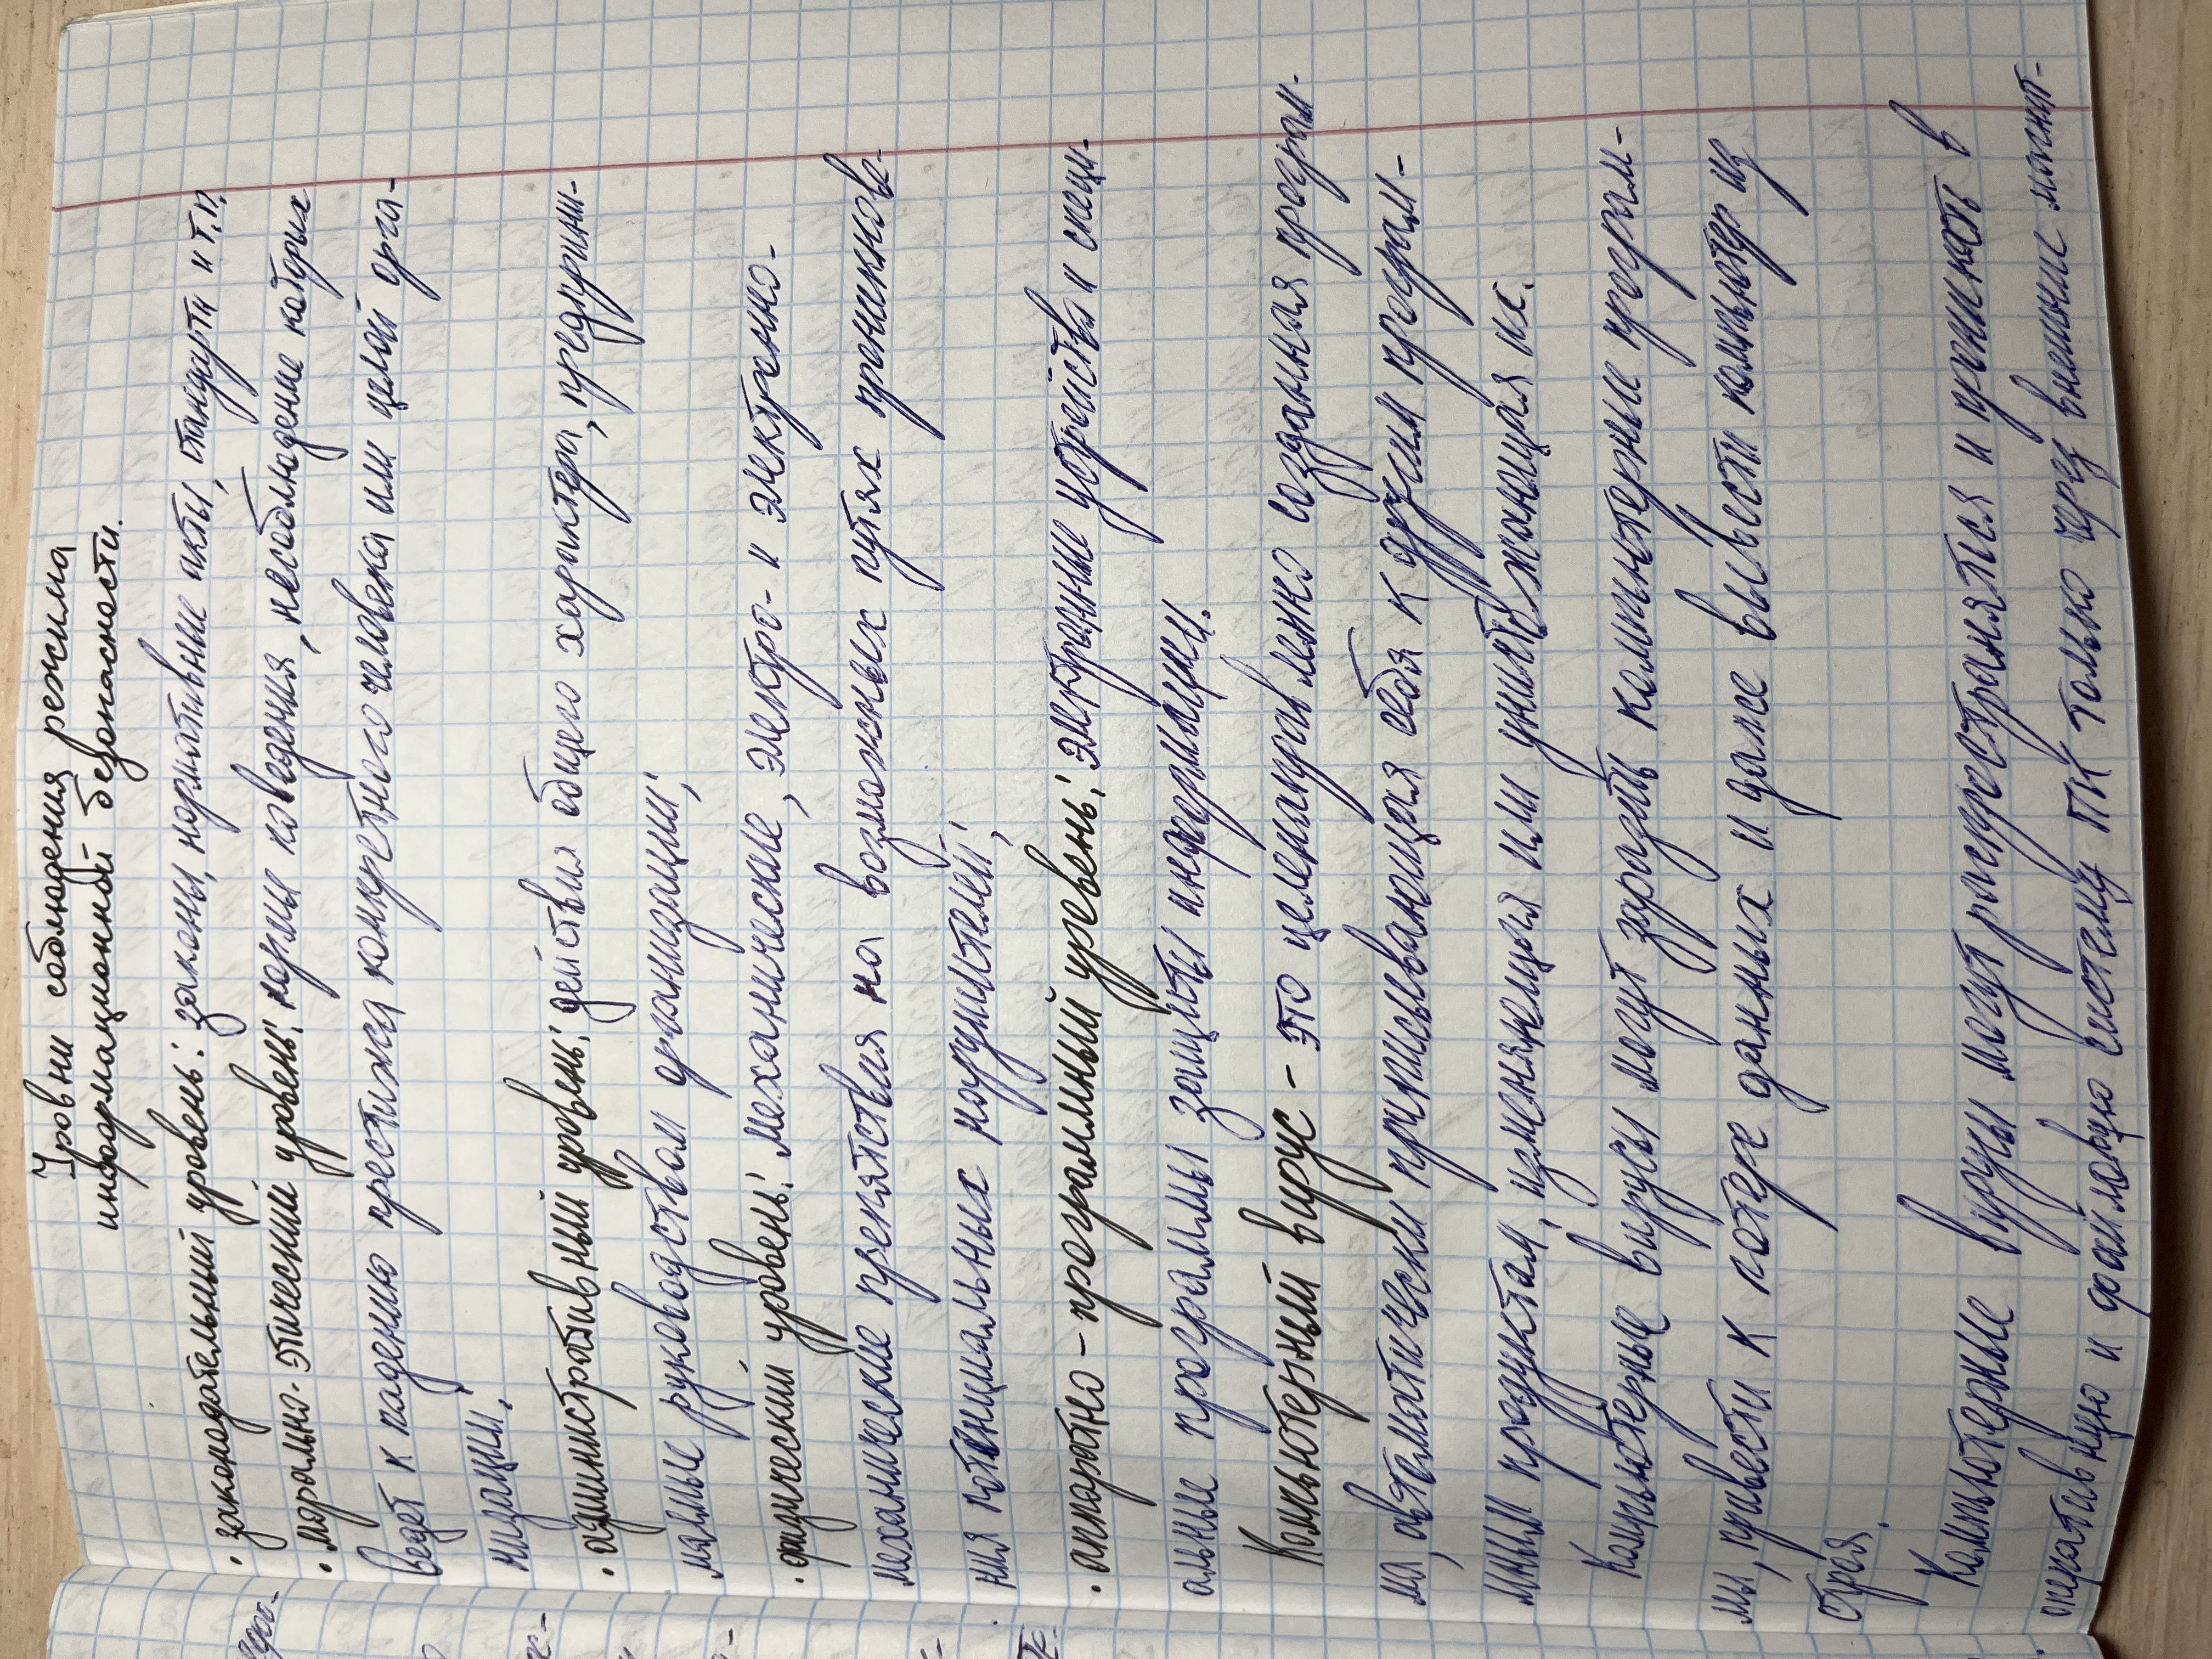 Уровни соблюдения режима
информационной безопасности.
• законодательный уровень: законы, нормативные акты, стандарты и т.п.
• морально-этический уровень: нормы поведения, несоблюдение которых
ведет к падению престижа конкретного человека или целой орга-
низации;
• административный уровень: действия общего характера, предприни-
маемые руководством организации;
• физический уровень: механические, электро- и электронно-
механические препятствия на возможных путях проникнове-
ния потенциальных нарушителей;
• аппаратно-программный уровень: электронные устройства и специ-
альные программы защиты информации.
Компьютерный вирус - это целенаправленно созданная програм-
ма, автоматически приписывающая себя к другим програм-
мным продуктам, изменяющая или уничтожающая их.
Компьютерные вирусы могут заразить компьютерные програм-
мы, привести к потере данных и даже вывести компьютер из
строя.
Компьютерные вирусы могут распространятся и проникать в
оперативную и файловую систему ПК только через внешние магнит-